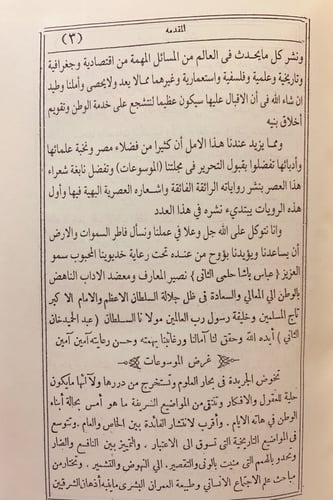 المقدمه
(٣)
ونشر كل مايحدث فى العالم من المسائل المهمة من اقتصادية وجغرافية
وتاريخية وعلمية وفلسفية واستعمارية وغيرهما ممالا يعد ولايحصى وأملنا وطيد
ان شاء الله فى أن الاقبال عليها سيكون عظيما لنتشجع على خدمة الوطن وتقويم
أخلاق بنيه
ومما يزيد عندنا هذا الامل أن كثيرا من فضلاء مصر ونخبة علمائها
وأدبائها تفضلوا بقبول التحرير فى مجلتنا (الموسوعات) وتفضل نابغة شعراء
هذا العصر بنشر رواياته الرائقة الفائقة واشعاره العصرية البهية فيها وأول
هذه الرويات يبتدىء نشره فى هذا العدد
وانا نتوكل على الله جل وعلا فى عملنا ونسأل فاطر السموات والارض
أن يساعدنا ويؤيدنا بروح من عنده تحت رعاية خديوينا المحبوب سمو
العزيز ﴿عباس باشا حلمى الثانى﴾ نصير المعارف ومعضد الاداب الناهض
بالوطن الي المعالي والسعادة فى ظل جلالة السلطان الاعظم والامام الا كبر
تاج المسلمين وخليفة رسول رب العالمين مولا نا السلطان (عبد الحميد خان
الثاني) أيده الله وحقق لنا آمالنا ورغائبنا بهمته وحسن رعايته آمين آمين
غرض الموسوعات
تخوض الجريدة فى بحار العلوم وتستخرج من دررها ولآ لئها مايكون
حلية للعقول والافكار وتنتقى من المواضيع الشريفة ما هو أمس بحالة أبناء
الوطن في هاته الايام . وأقرب لانتشار الفائدة بين الخاص والعام . وتتوسع
فى المواضيع التاريخية التى تسوق الى الاعتبار . والتمييز بين النافع والضار
وتحدو بالهمم التى منيت بالونى والتقصير . الي النهوض والتشمير . وتختار من
مباحث علم الاجتماع الانسانى وطبيعة العمران البشرى مايفيد أذهان الشرقيين